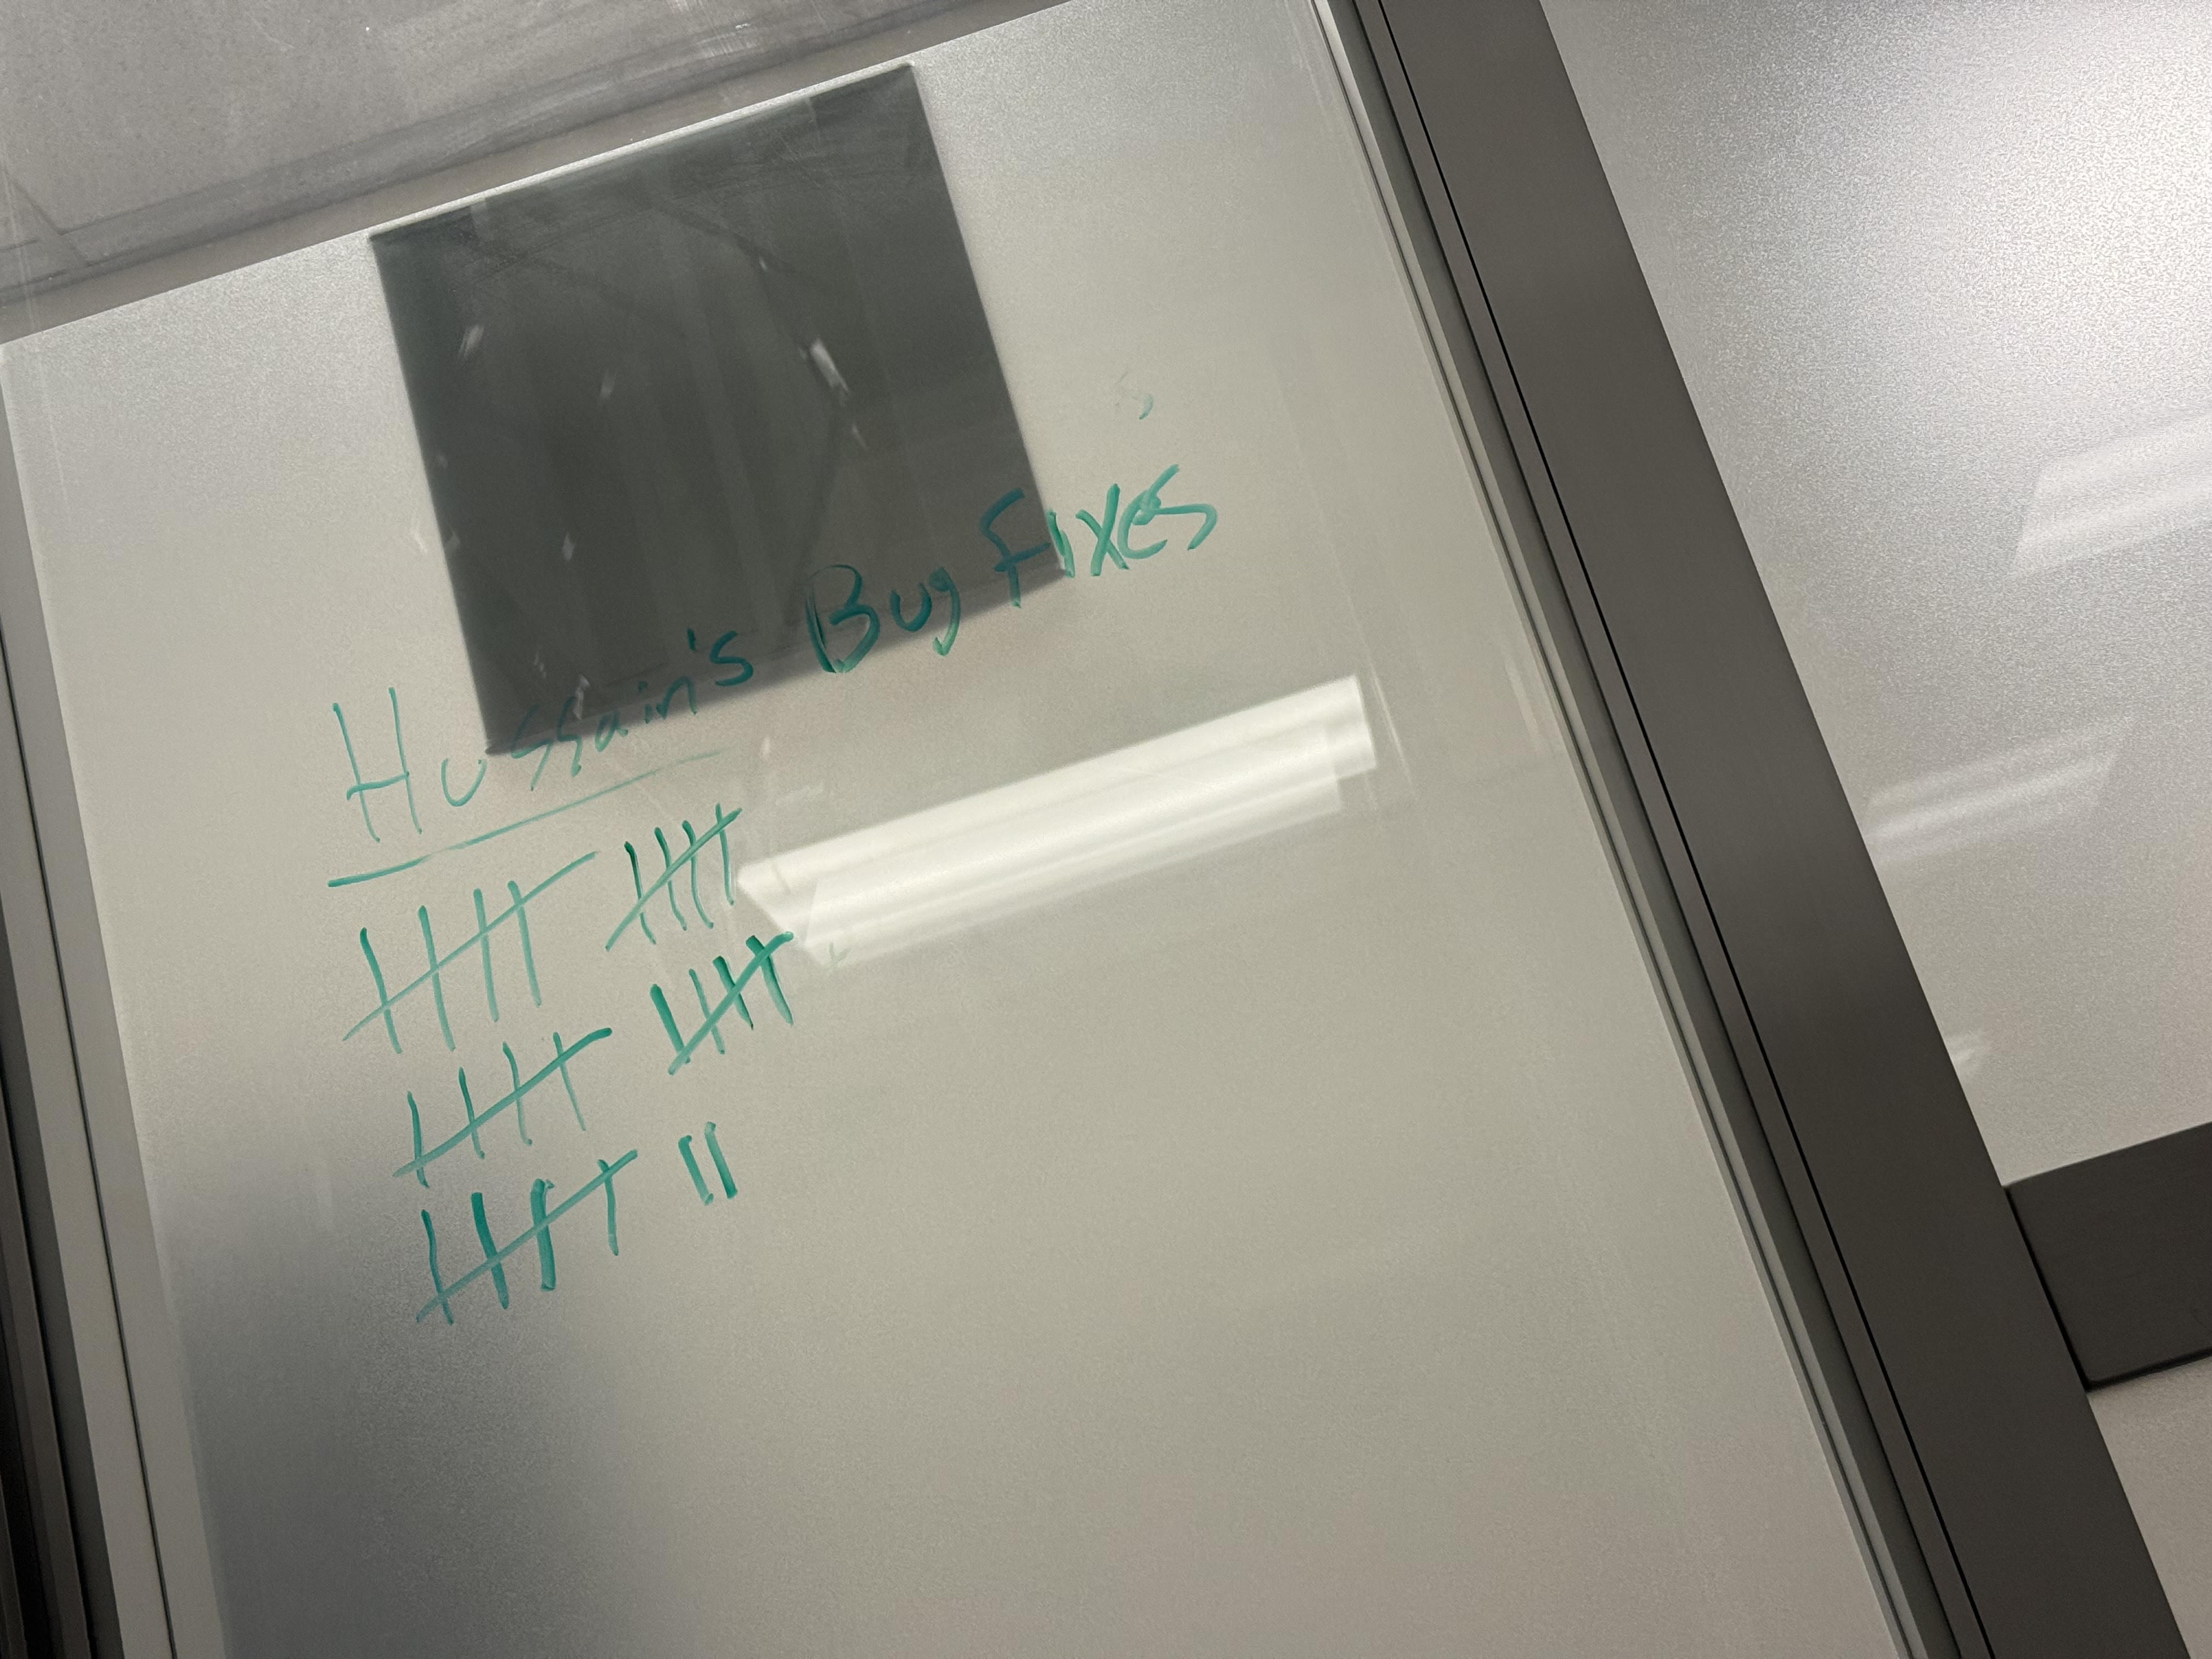 Hussain's Bug Fixes